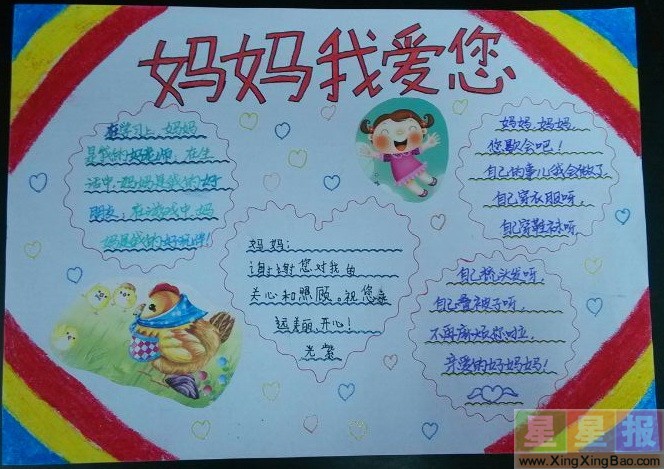 妈妈我爱您
在学习上,妈妈
是我的好老师,在生
活中妈妈是我的好
朋友,在游戏中,妈
妈是我的好玩伴!
妈妈:
谢谢您对我的
关心和照顾。祝您永
远美丽、开心!
光紫
妈妈,妈妈,
您歇会吧!
自己的事儿我会做了
自己穿衣服呀
自己穿鞋袜呀
自己梳头发呀,
自己叠被子呀,
不再麻烦你啦,
亲爱的好妈妈!
星星报
www.XingXingBao.com